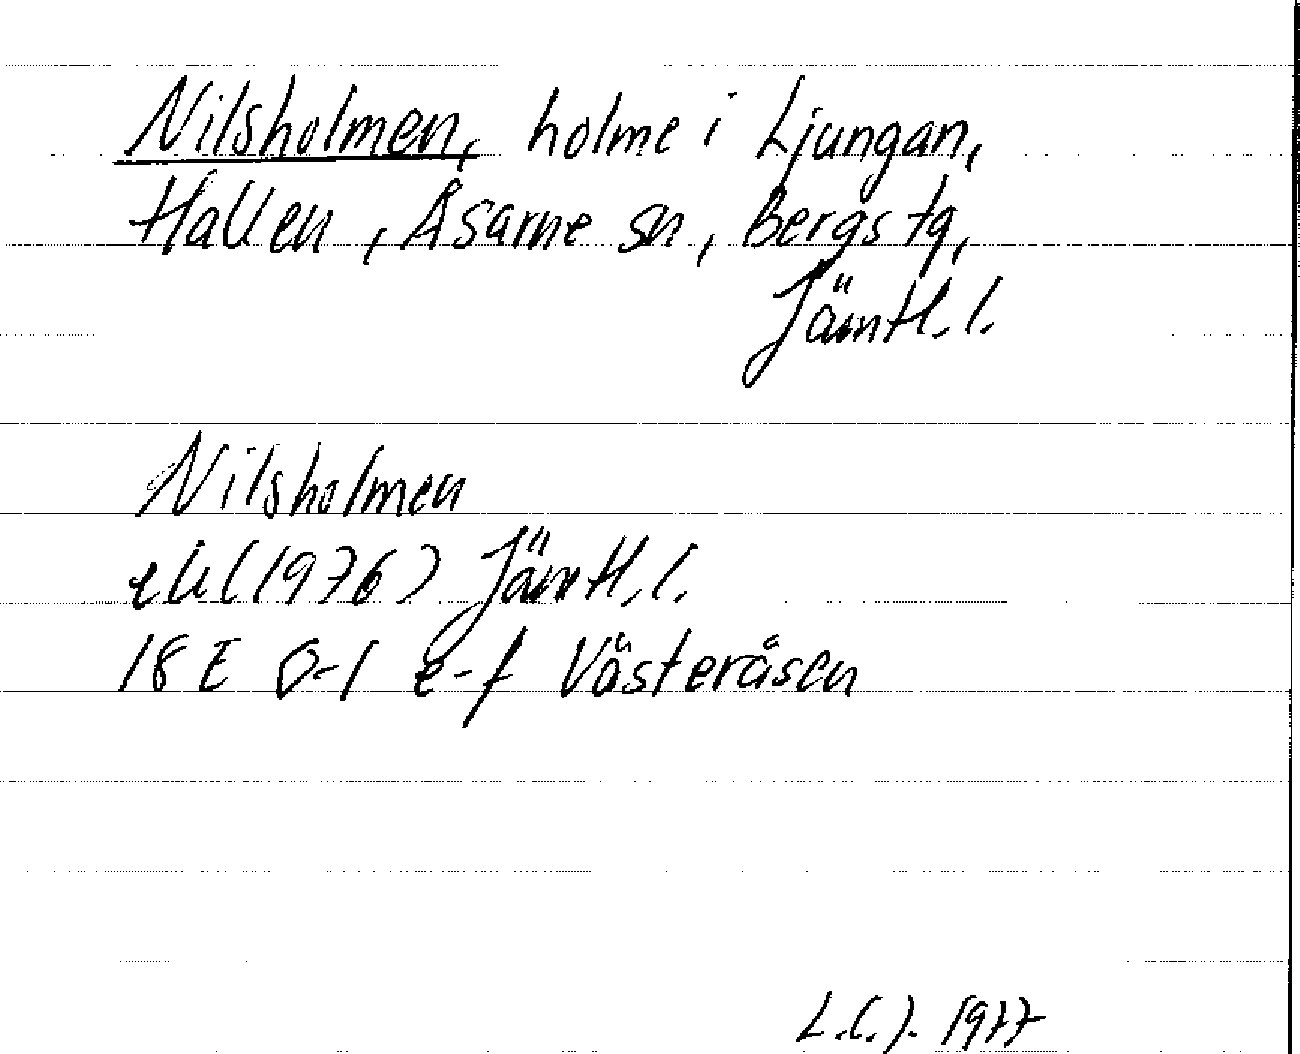 Nilsholmen, holme i Ljungan,
Hallen, Åsarne sn, Bergs tg,
Jämtl. l.
Nilsholmen
ek (1976) Jämtl. l.
18 E 0-1 e-f Västeråsen
L.C.J. 1977